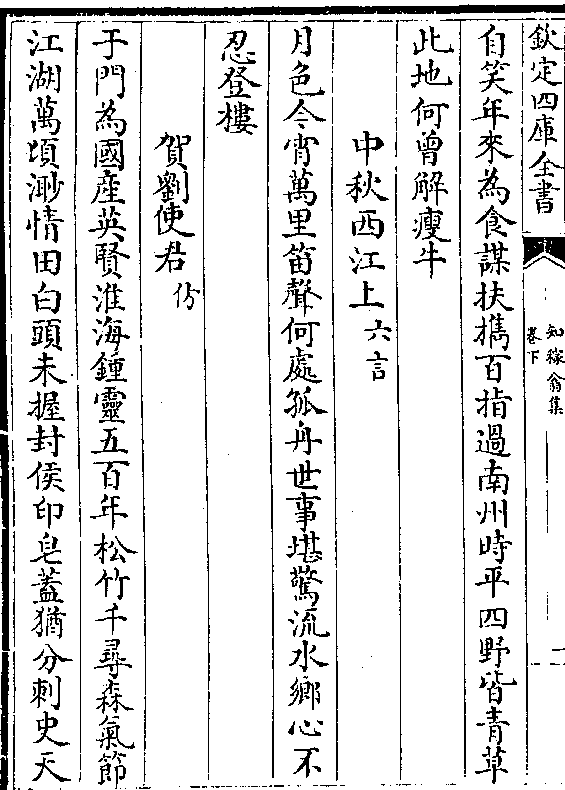 欽定四庫全書
知稼翁集
卷下
自笑年來為食謀扶攜百指過南州時平四野皆青草
此地何曾解瘦牛
中秋西江上六言
月色今宵萬里笛聲何處孤舟世事堪驚流水鄉心不
忍登樓
賀劉使君份
于門為國産英賢淮海鍾靈五百年松竹千尋森氣節
江湖萬頃渺情田白頭未握封侯印皂蓋猶分刺史天